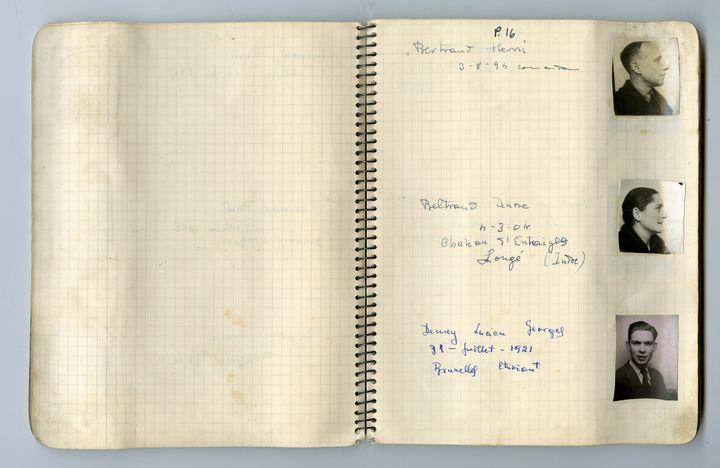 P.16
Bertrand Henri
3-8-94
Beltrand Anne
4-3-04
Chateau d'Entraigues
Langé (Indre)
Demey Lucien Georges
31 - Juillet - 1921
Bruxelles Etudiant